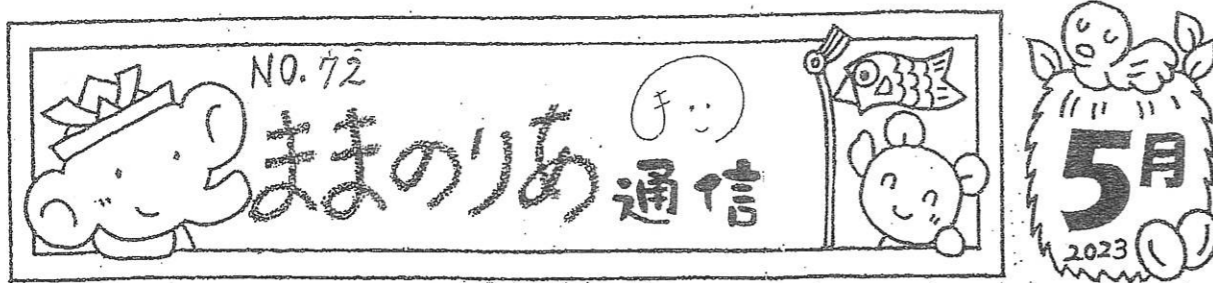 NO.72
ま
ままのりあ通信
5月
2023